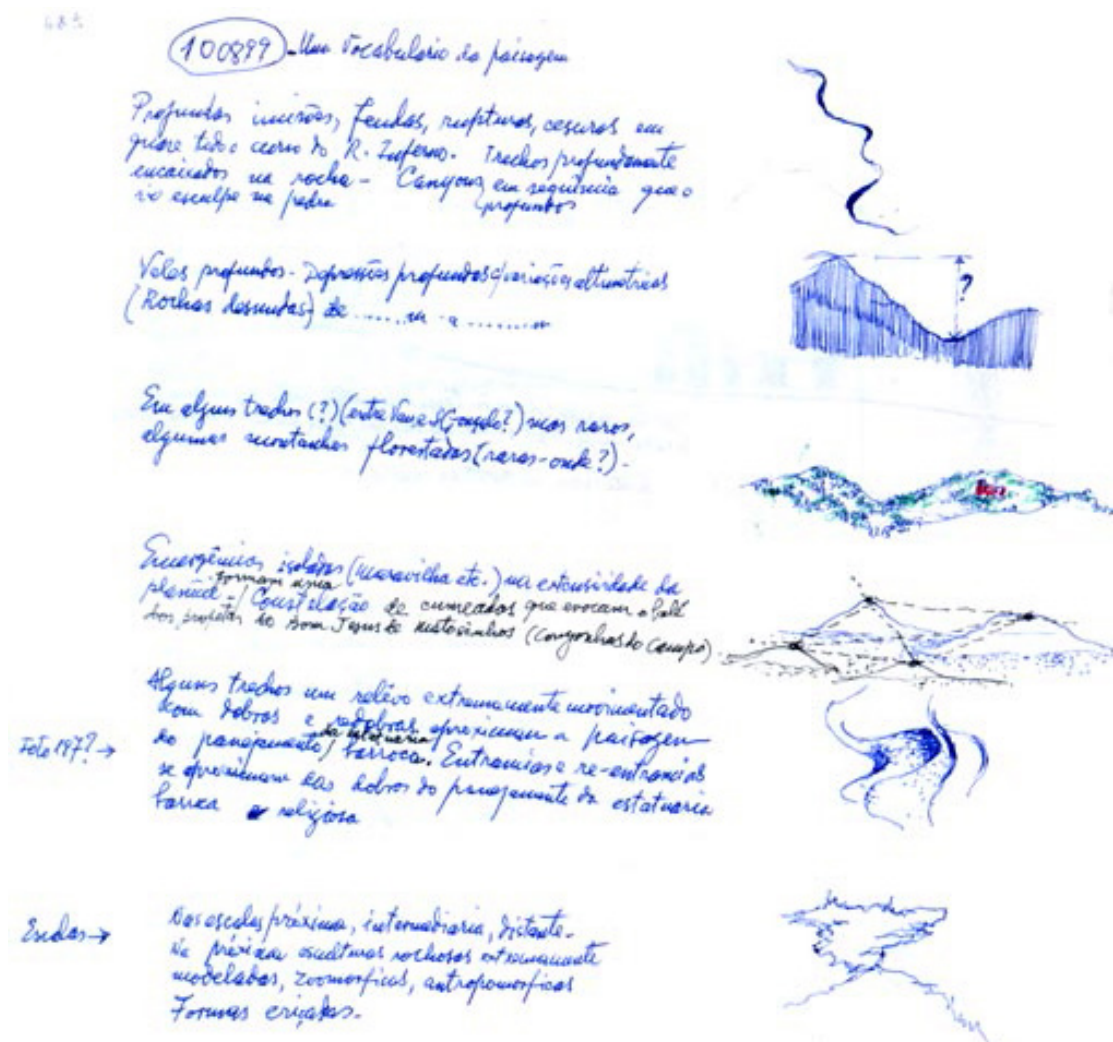 100899 - Um vocabulário da paisagem
Profundas incisões, fendas, rupturas, cesuras em
quase todo o cerne do R. Inferno. Trechos profundamente
encaixados na rocha - Canyons em sequência que o
profundos
rio esculpe na pedra
Vales profundos - Depressões profundas c/ variações altimétricas
(Rochas desnudas) de ........ m a ......... m
?
Em alguns trechos (?) (entre e S. Gonçalo?) mas raros,
algumas montanhas florestadas (raras - onde?) -
Emergências isoladas (maravilha etc.) na extensividade da
formam uma
planície - / Constelação de cumeadas que evocam o
dos profetas do Bom Jesus de Matosinhos (Congonhas do Campo).
Alguns trechos um relêvo extremamente movimentado
com dobras e redobras aproximam a paisagem
da estatuária
Foto 197? → do panejamento / barroca. Entrancias e re-entrancias
se aproximam das dobras do panejamento da estatuaria
barroca e religiosa
Escalas → Nas escalas próxima, intermediaria, distante -
Na próxima esculturas rochosas extremamente
modeladas, zoomorficas, antropomorficas
Formas eriçadas -